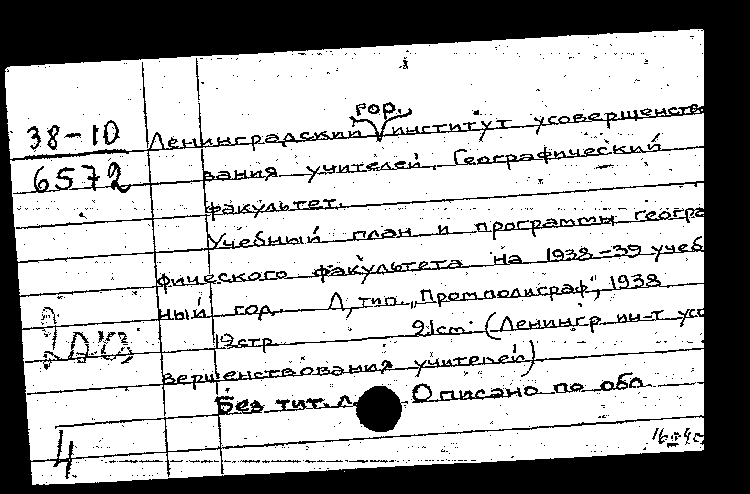 гор.
38-10 Ленинградский институт усовершенство
6572 вания учителей. Географический
факультет.
Учебный план и программы геогра
фического факультета на 1938-39 учеб
ный год. Л, тип. „Промполиграф", 1938
19стр 21cm (Ленингр. ин-т усо
2 экз
вершенствования учителей)
Без тит. л. Описано по обл.
4